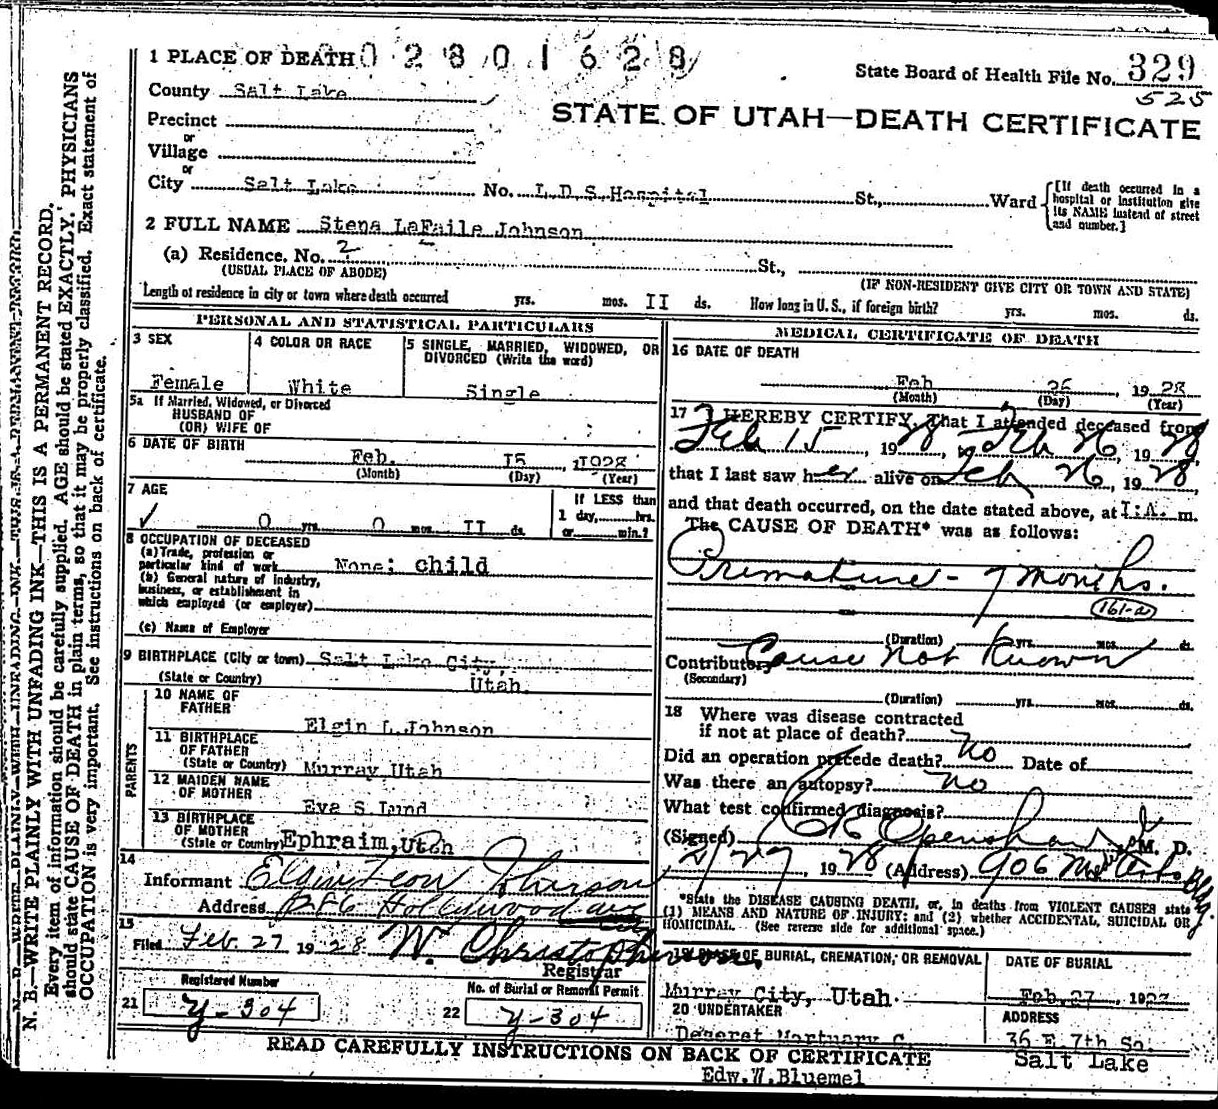 1 PLACE OF DEATH 02801628
State Board of Health File No. 329
525
County Salt Lake
STATE OF UTAH—DEATH CERTIFICATE
Precinct
or
Village
or
City Salt Lake No. L D S Hospital St., Ward
[If death occurred in a
hospital or institution give
its NAME instead of street
and number.]
2 FULL NAME Stena LaFaile Johnson
(a) Residence. No. 2 St.,
(USUAL PLACE OF ABODE) (IF NON-RESIDENT GIVE CITY OR TOWN AND STATE)
Length of residence in city or town where death occurred yrs. mos. II ds. How long in U. S., if foreign birth? yrs. mos. ds.
PERSONAL AND STATISTICAL PARTICULARS
3 SEX
Female
4 COLOR OR RACE
White
5 SINGLE, MARRIED, WIDOWED, OR
DIVORCED (Write the word)
Single
5a If Married, Widowed, or Divorced
HUSBAND OF
(OR) WIFE OF
6 DATE OF BIRTH
Feb. I5 1928
(Month) (Day) (Year)
7 AGE
✓ 0 yrs. 0 mos. II ds.
If LESS than
1 day, hrs.
or min.?
8 OCCUPATION OF DECEASED
(a) Trade, profession or
particular kind of work None; child
(b) General nature of industry,
business, or establishment in
which employed (or employer)
(c) Name of Employer
9 BIRTHPLACE (City or town) Salt Lake City,
(State or Country) Utah
PARENTS
10 NAME OF
FATHER
Elgin L Johnson
11 BIRTHPLACE
OF FATHER
(State or Country) Murray Utah
12 MAIDEN NAME
OF MOTHER
Eva S Lund
13 BIRTHPLACE
OF MOTHER
(State or Country) Ephraim, Utah
14
Informant Elgin Leon Johnson
Address Hollywood ave
15
Filed Feb 27 1928 W. Christopherson.
Registrar
Registered Number
21 y-304
No. of Burial or Removal Permit
22 y-304
MEDICAL CERTIFICATE OF DEATH
16 DATE OF DEATH
Feb 26 1928
(Month) (Day) (Year)
17 I HEREBY CERTIFY, That I attended deceased from
Feb 15, 1928, to Feb 26, 1928,
that I last saw her alive on Feb 26, 1928,
and that death occurred, on the date stated above, at I:A. m.
The CAUSE OF DEATH* was as follows:
Premature - 7 months.
161-a
(Duration) yrs. mos. ds.
Contributory Cause not Known
(Secondary)
(Duration) yrs. mos. ds.
18 Where was disease contracted
if not at place of death?
Did an operation precede death? No Date of
Was there an autopsy? No
What test confirmed diagnosis?
(Signed) Openshaw M. D.
2/27 1928 (Address) 906 Med Arts Bldg.
*State the DISEASE CAUSING DEATH, or, in deaths from VIOLENT CAUSES state
(1) MEANS AND NATURE OF INJURY; and (2) whether ACCIDENTAL, SUICIDAL OR
HOMICIDAL. (See reverse side for additional space.)
19 PLACE OF BURIAL, CREMATION, OR REMOVAL
Murray City, Utah.
DATE OF BURIAL
Feb. 27, 192
20 UNDERTAKER
Deseret Mortuary C.
ADDRESS
36 E 7th So.
Salt Lake
READ CAREFULLY INSTRUCTIONS ON BACK OF CERTIFICATE
Edw. W. Bluemel
N. B.—WRITE PLAINLY WITH UNFADING INK—THIS IS A PERMANENT RECORD.
Every item of information should be carefully supplied. AGE should be stated EXACTLY. PHYSICIANS
should state CAUSE OF DEATH in plain terms, so that it may be properly classified. Exact statement of
OCCUPATION is very important. See instructions on back of certificate.